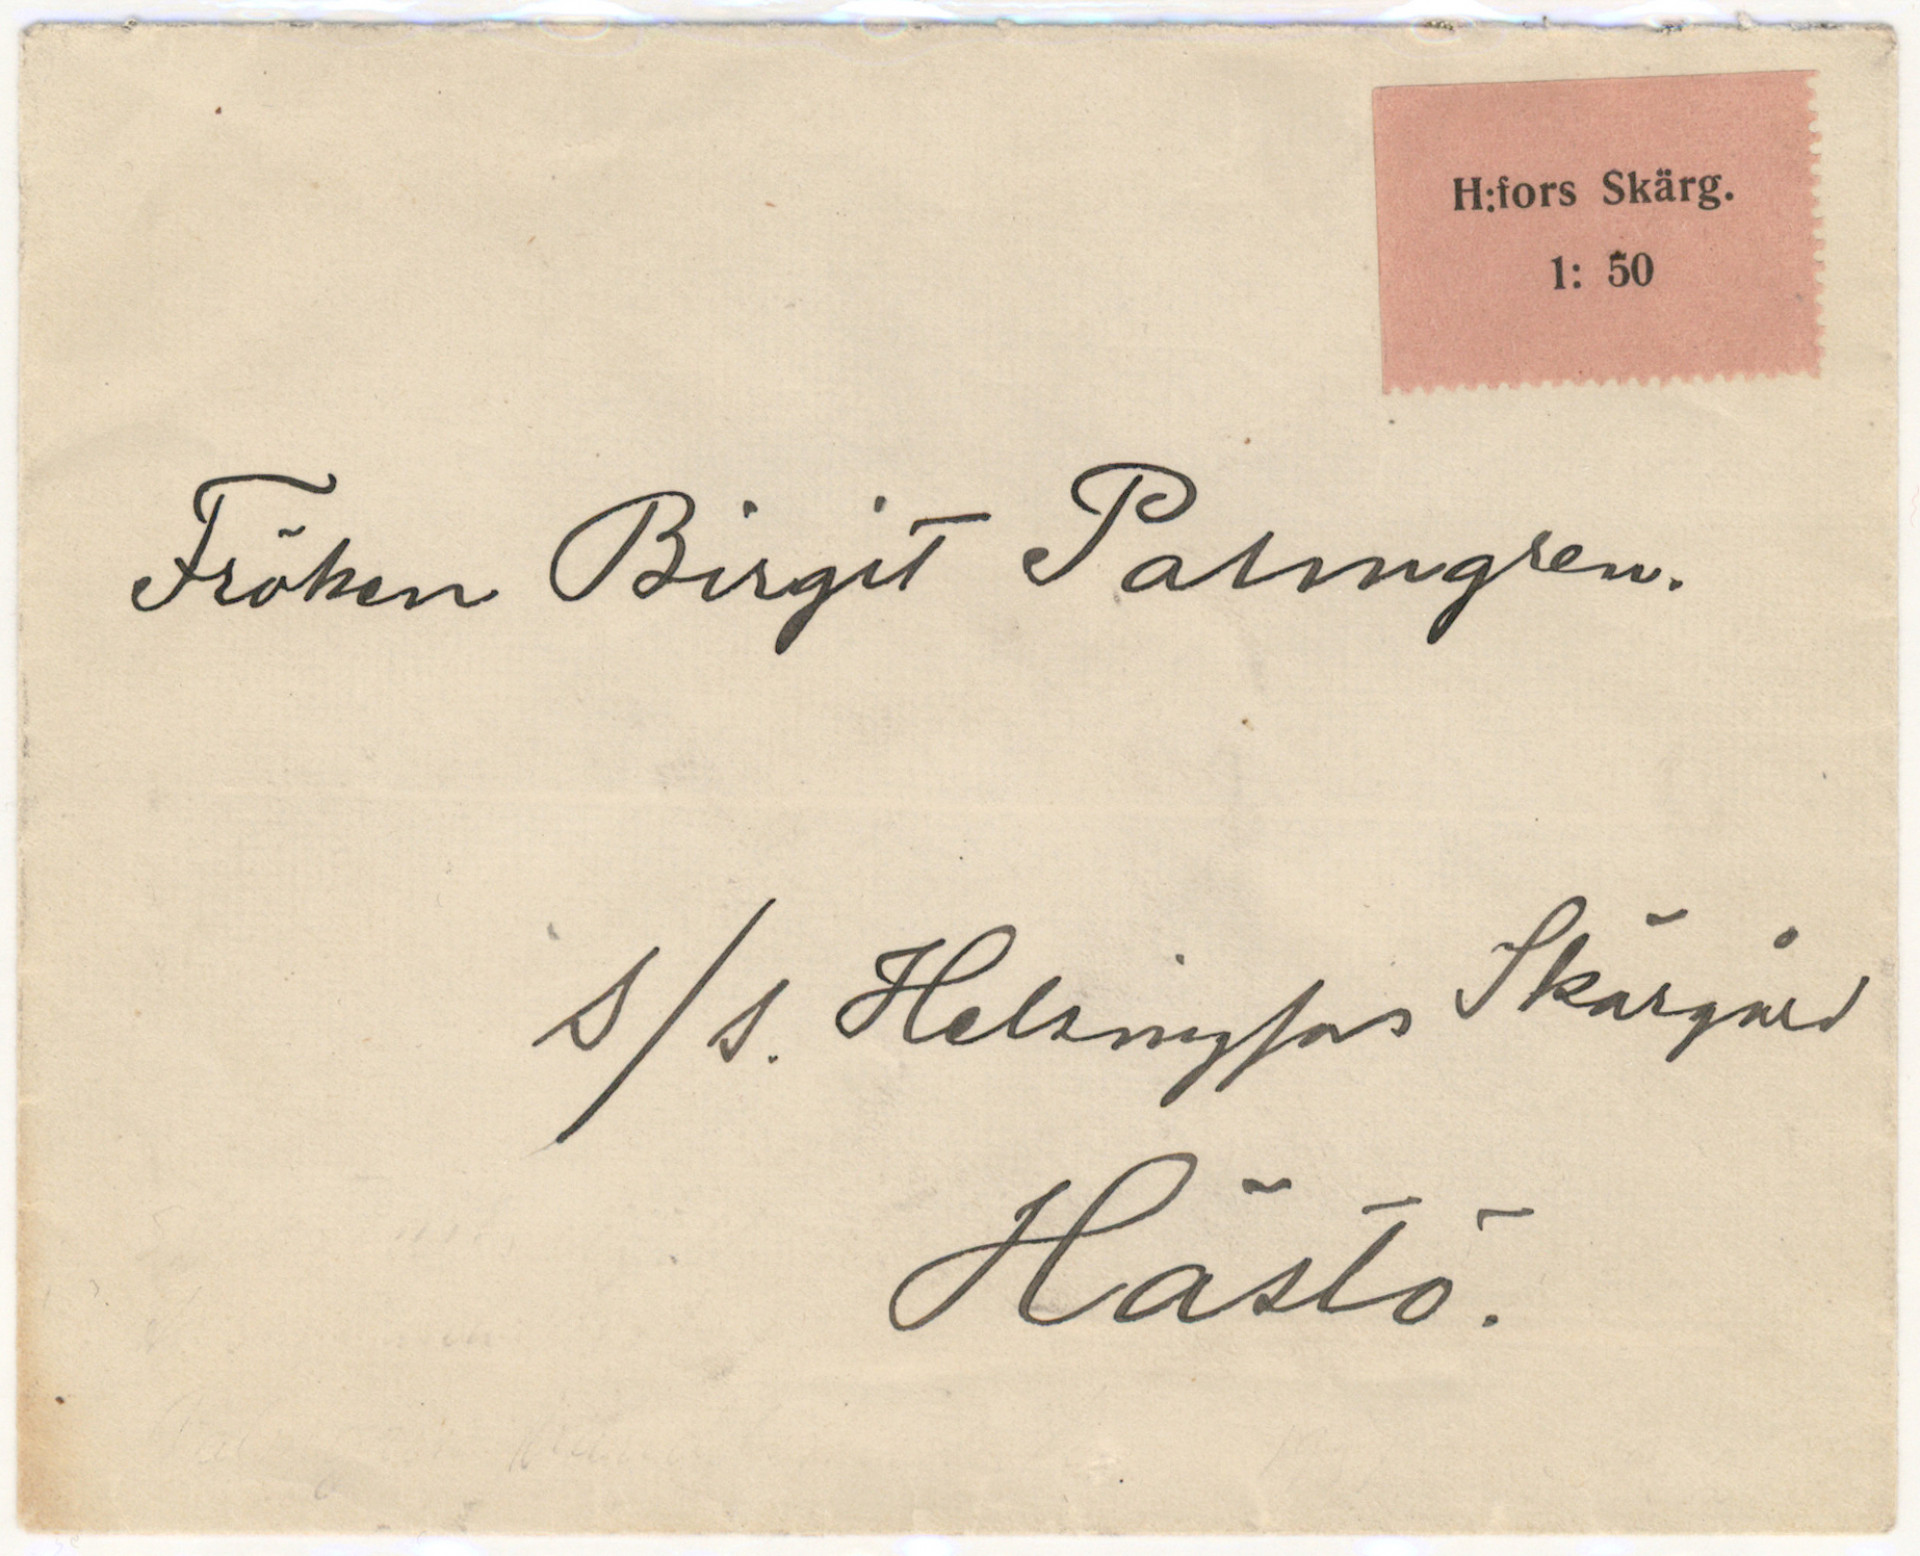 H:fors Skärg.
1: 50
Fröken Birgit Palmgren.
S/S. Helsingfors Skärgård
Hästö.